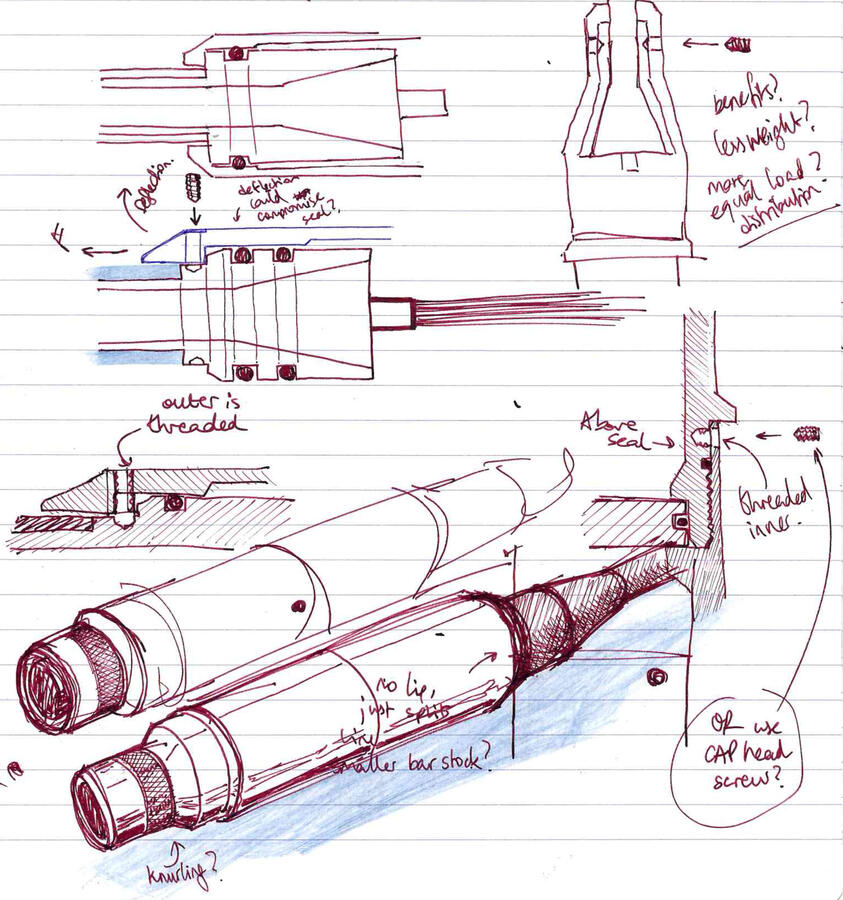 benefits?
less weight?
more
equal load?
distribution.
deflection.
deflection
could
compromise
seal?
outer is
threaded
Above
seal
threaded
inner.
no lip,
just split
line
smaller bar stock?
OR use
CAP head
screw?
knurling?